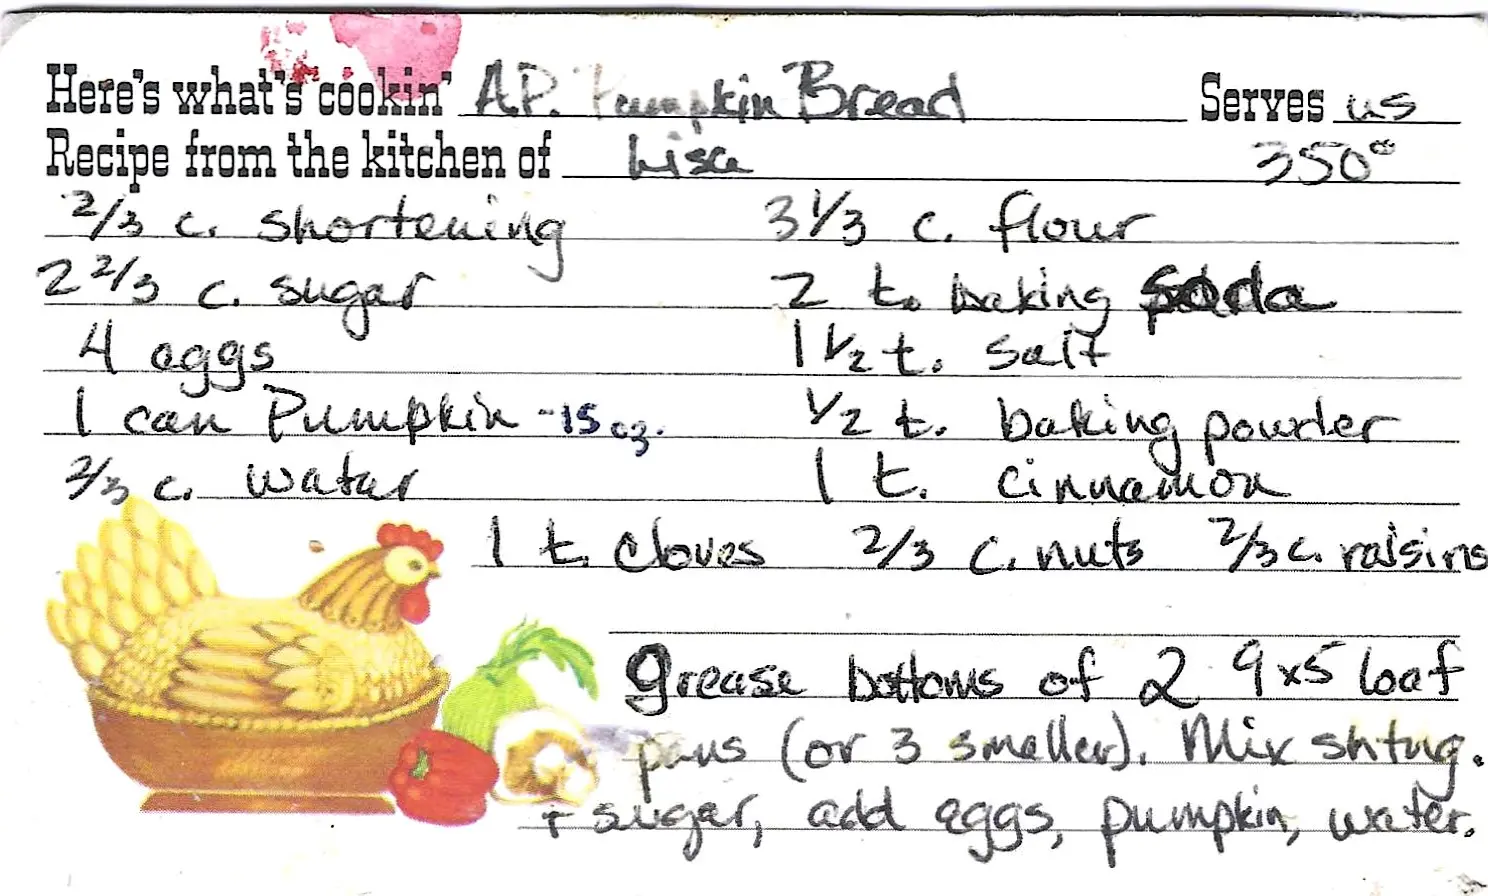 Here's what's cookin' A.P. Pumpkin Bread Serves us
Recipe from the kitchen of Lisa 350°
2/3 c. shortening 3 1/3 c. flour
2 2/3 c. sugar 2 t. baking soda
4 eggs 1 1/2 t. salt
1 can Pumpkin - 15 oz. 1/2 t. baking powder
2/3 c. water 1 t. cinnamon
1 t. cloves 2/3 c. nuts 2/3 c. raisins
grease bottoms of 2 9x5 loaf
pans (or 3 smaller). Mix shtng.
+ sugar, add eggs, pumpkin, water.